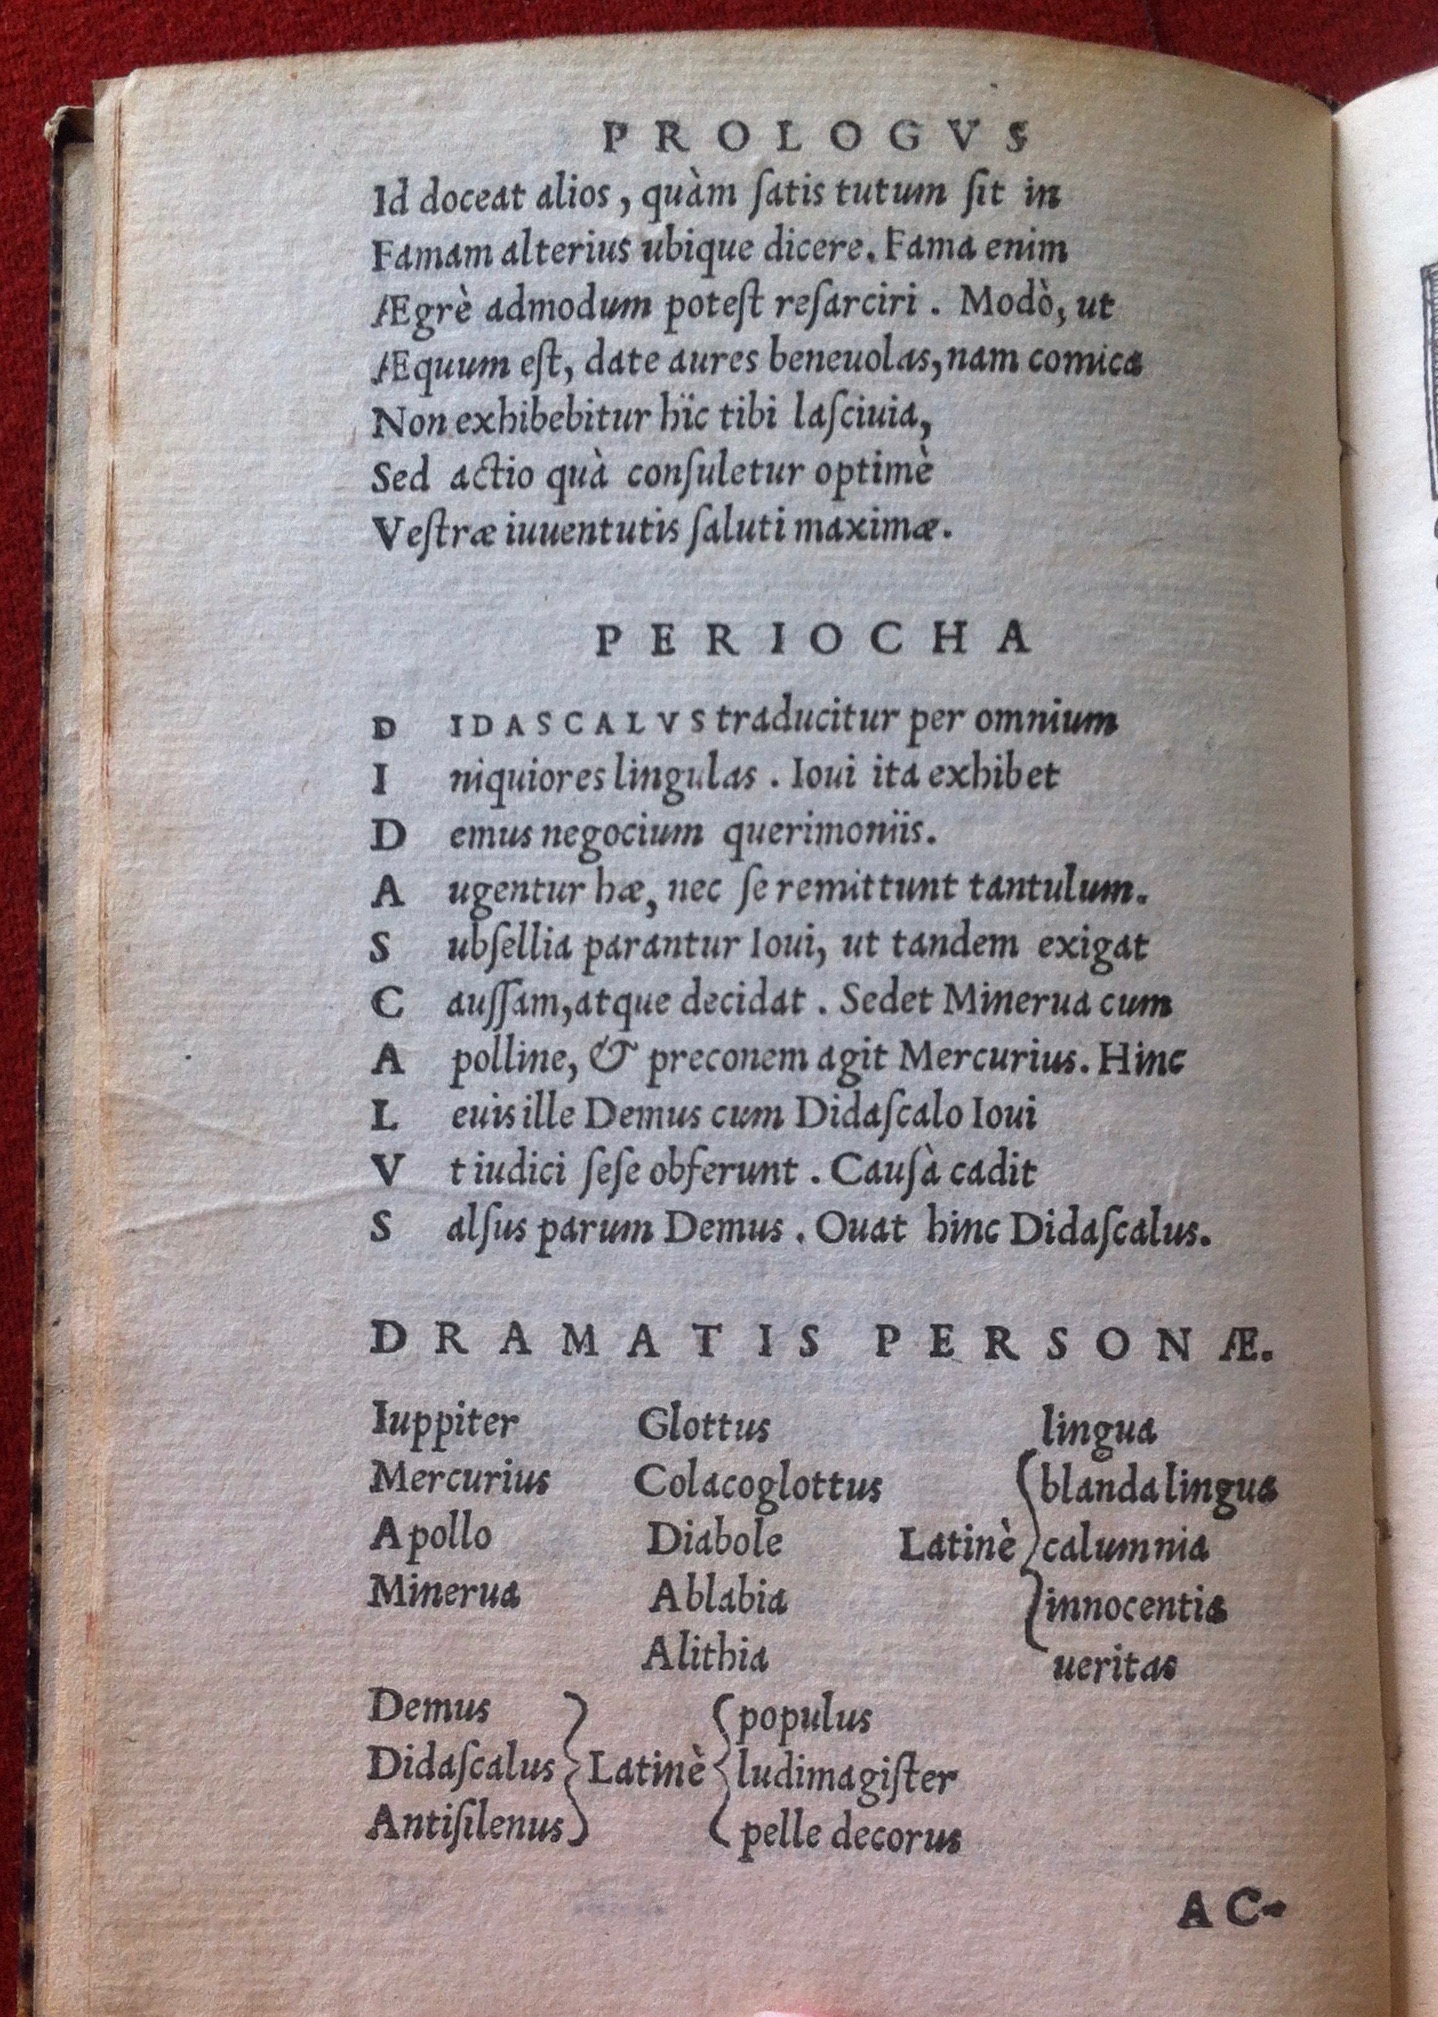 PROLOGVS
Id doceat alios, quàm ſatis tutum ſit in
Famam alterius ubique dicere. Fama enim
Ægrè admodum poteſt reſarciri. Modò, ut
Æquum eſt, date aures beneuolas, nam comica
Non exhibebitur hïc tibi laſciuia,
Sed actio quà conſuletur optimè
Veſtræ iuuentutis ſaluti maximæ.
PERIOCHA
D IDASCALVS traducitur per omnium
I niquiores lingulas. Ioui ita exhibet
D emus negocium querimoniis.
A ugentur hæ, nec ſe remittunt tantulum.
S ubſellia parantur Ioui, ut tandem exigat
C auſſam, atque decidat. Sedet Minerua cum
A polline, & preconem agit Mercurius. Hinc
L euis ille Demus cum Didaſcalo Ioui
V t iudici ſeſe obferunt. Cauſà cadit
S alſus parum Demus. Ouat hinc Didaſcalus.
DRAMATIS PERSONÆ.
Iuppiter Glottus lingua
Mercurius Colacoglottus blanda lingua
Apollo Diabole Latinè calumnia
Minerua Ablabia innocentia
Alithia ueritas
Demus populus
Didaſcalus Latinè ludimagiſter
Antiſilenus pelle decorus
AC-